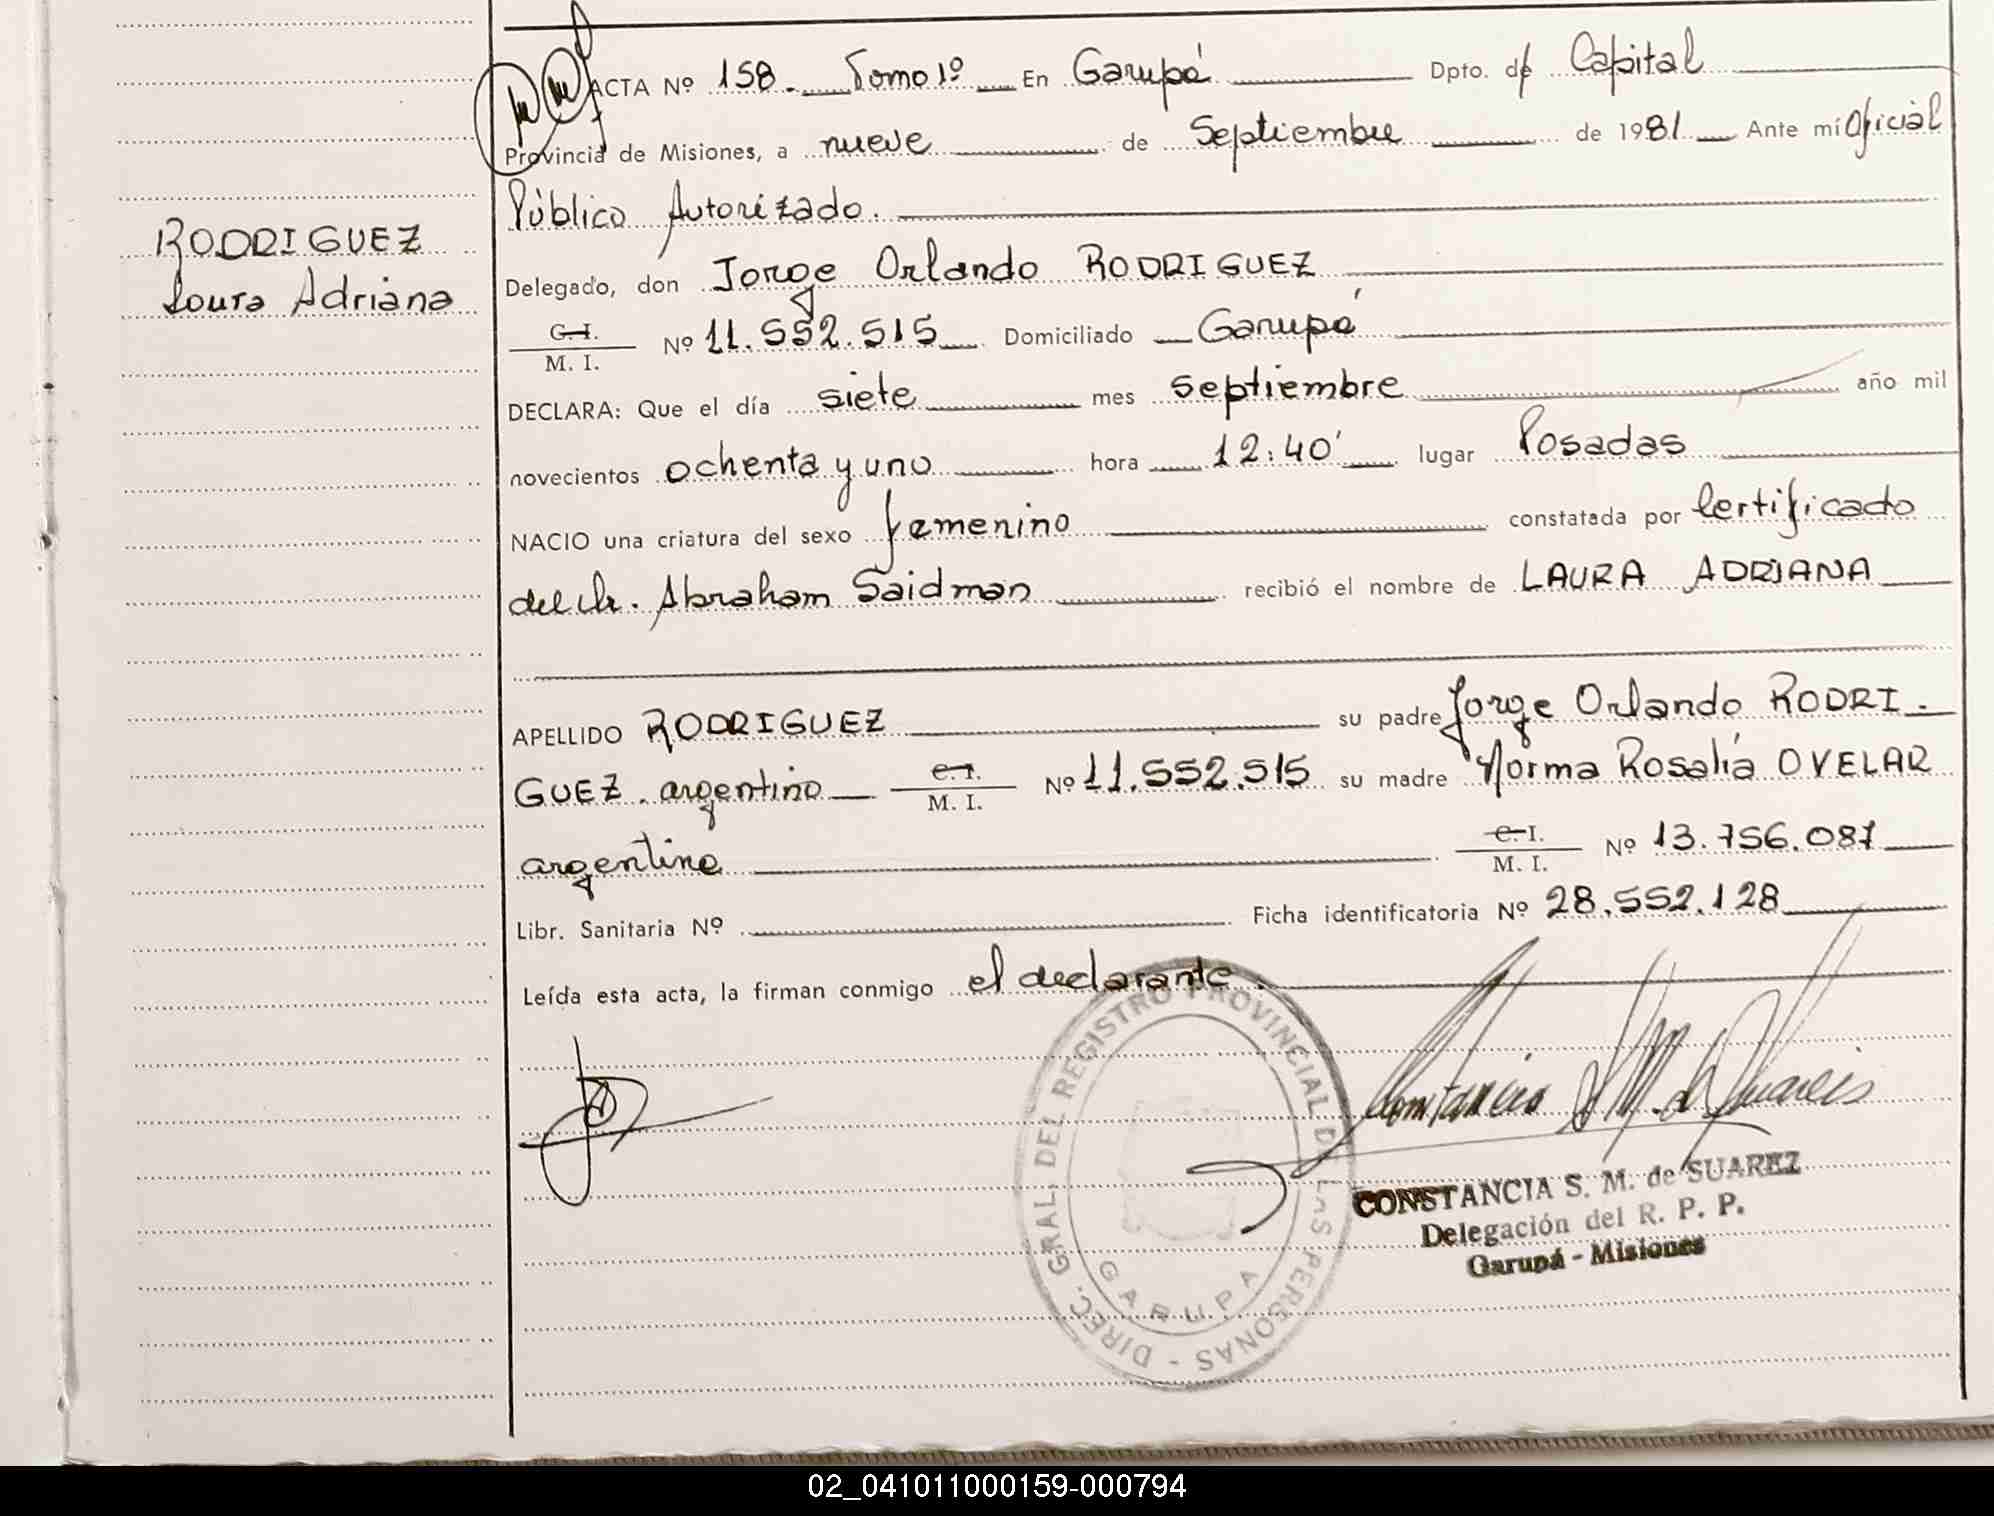 ACTA Nº 158. Tomo 1º En Garupá Dpto. de Capital
Provincia de Misiones, a nueve de Septiembre de 1981 Ante mí Oficial
Público Autorizado.
RODRIGUEZ
Laura Adriana
Delegado, don Jorge Orlando RODRIGUEZ
C. I.
M. I. Nº 11.552.515 Domiciliado Garupá
DECLARA: Que el día siete mes septiembre año mil
novecientos ochenta y uno hora 12:40' lugar Posadas
NACIO una criatura del sexo femenino constatada por Certificado
del Dr. Abraham Saidman recibió el nombre de LAURA ADRIANA
APELLIDO RODRIGUEZ su padre Jorge Orlando RODRI-
GUEZ. argentino C. I. M. I. Nº 11.552.515 su madre Norma Rosalía OVELAR
argentina C. I. M. I. Nº 13.756.087
Libr. Sanitaria Nº Ficha identificatoria Nº 28.552.128
Leída esta acta, la firman conmigo el declarante.
DIREC. GRAL. DEL REGISTRO PROVINCIAL DE LAS PERSONAS -
GARUPA
Constancia S M. de Suarez
CONSTANCIA S. M. de SUAREZ
Delegación del R. P. P.
Garupá - Misiones
02_041011000159-000794